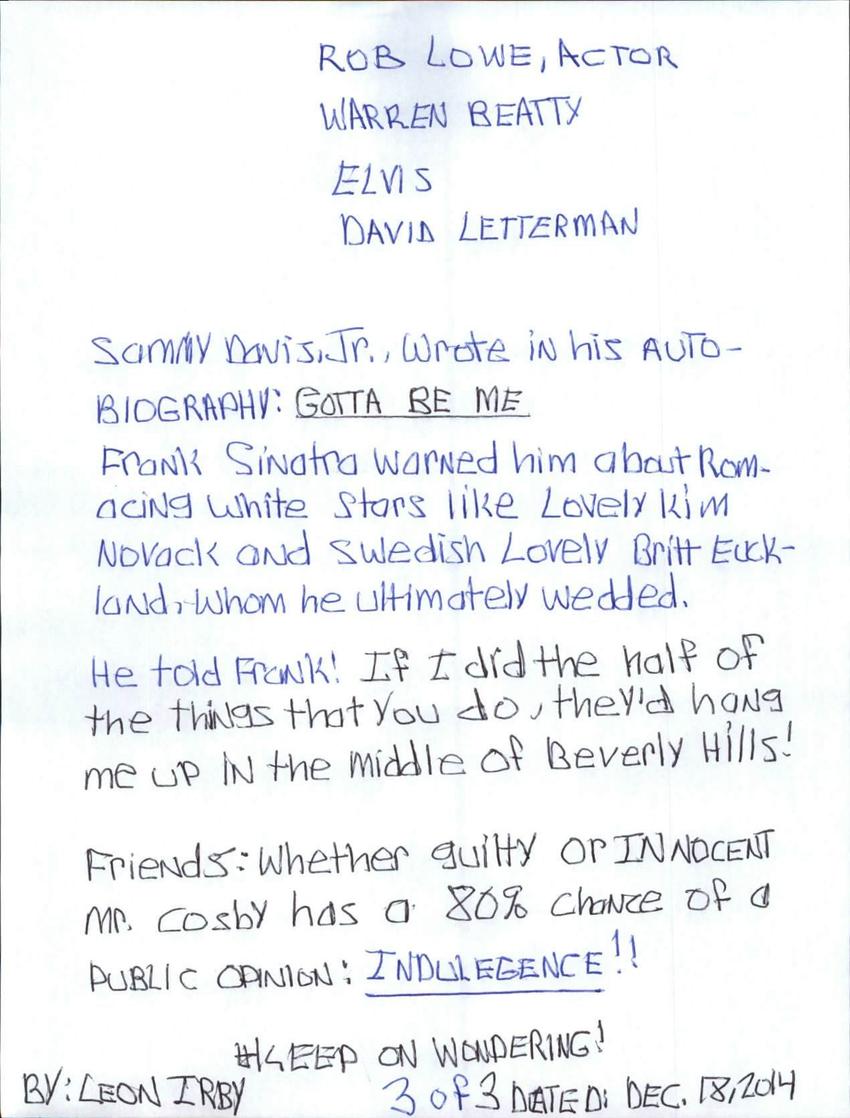 ROB LOWE, ACTOR
WARREN BEATTY
ELVIS
DAVID LETTERMAN
Sammy Davis, Jr., Wrote in his AUTO-
BIOGRAPHY: GOTTA BE ME
Frank Sinatra warned him about Rom-
acing white stars like Lovely Kim
Novack and Swedish Lovely Britt Euck-
land, whom he ultimately wedded.
He told Frank! If I did the half of
the things that you do, they'd hang
me up in the middle of Beverly Hills!
Friends: Whether guilty or INNOCENT
Mr. Cosby has a 80% chance of a
PUBLIC OPINION: INDULEGENCE!!
#KEEP ON WONDERING!
BY: LEON IRBY 3 of 3 DATED: DEC. 18, 2014